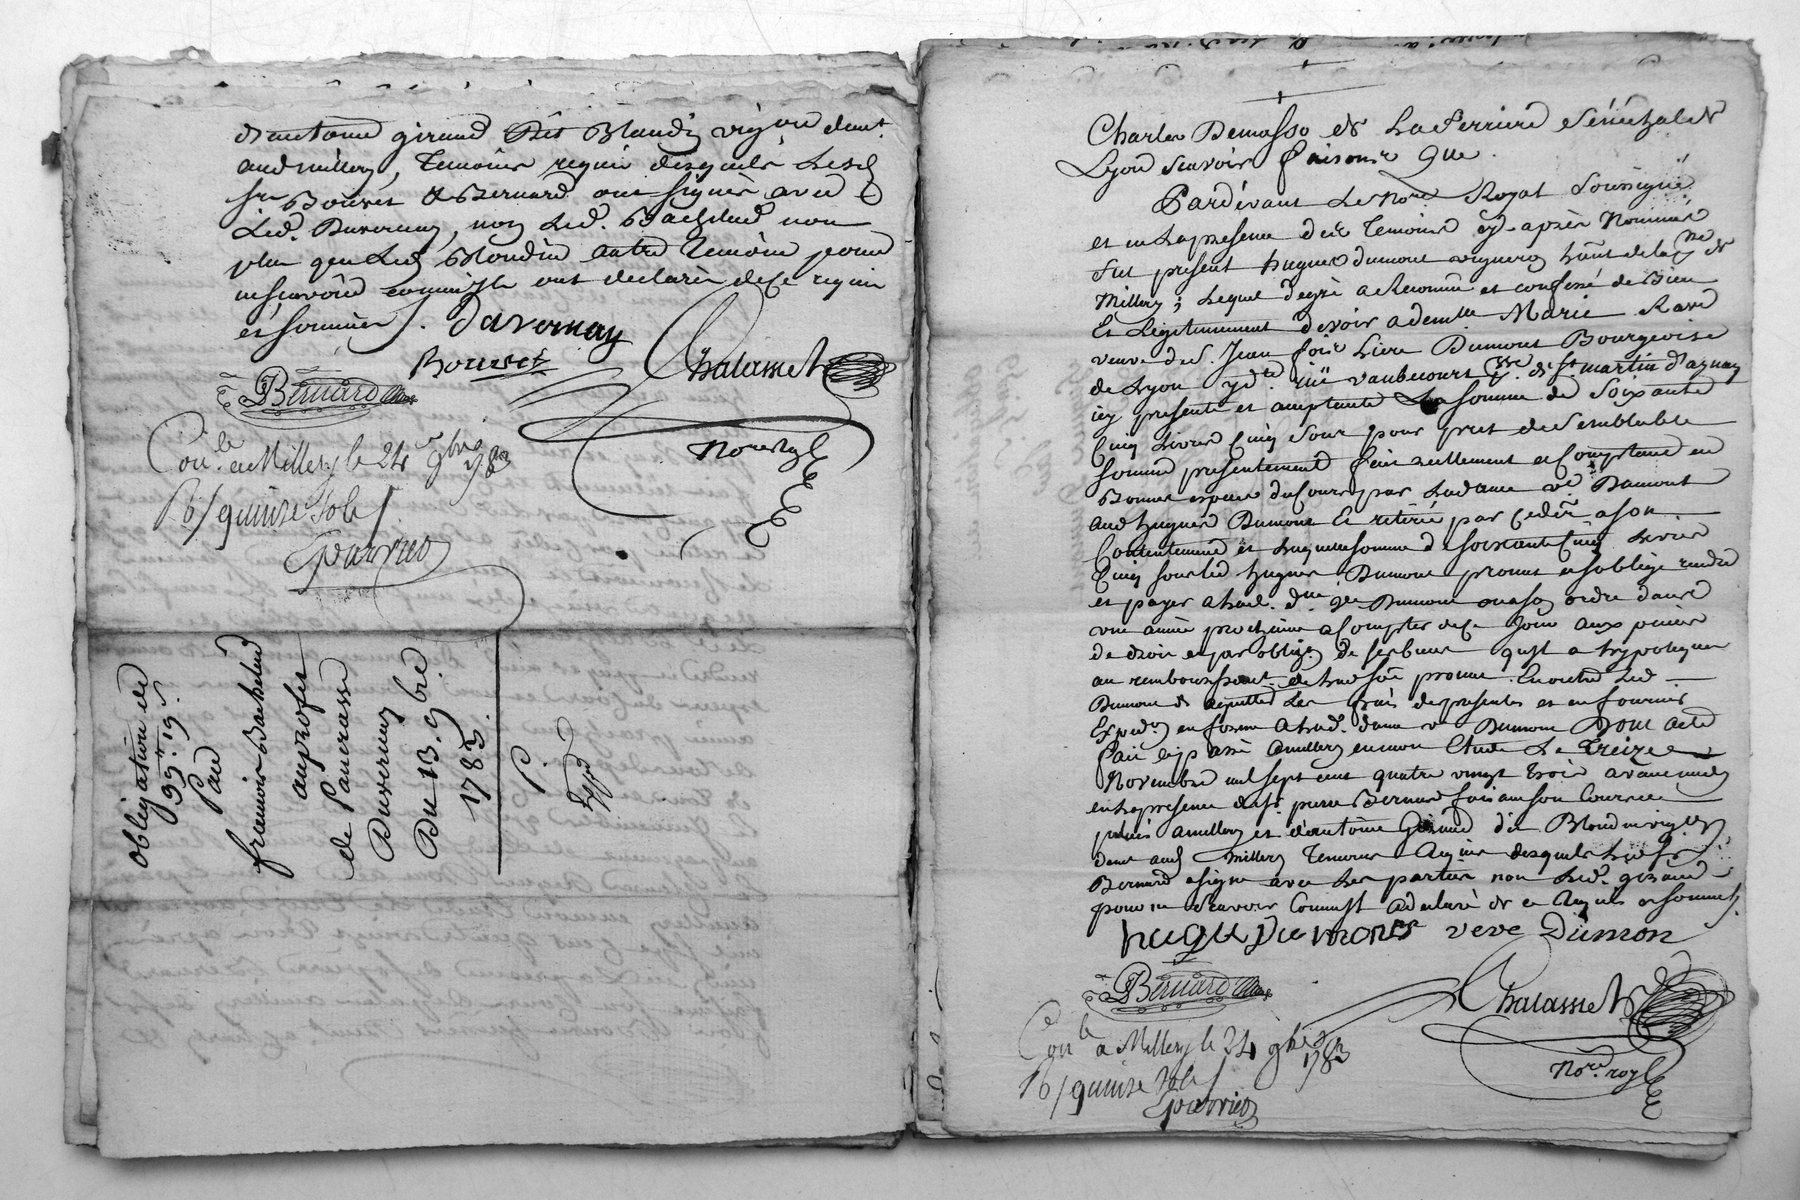 d'antoine giraud dit Blondin vigron demt.
aud millery, temoins requis desquels Lesd
srs Bouvet & Bernard ont signés avec
Led. Duvernay, non Led. Bachelud non
plus que Led Blondin autre temoin pour
ne scavoir comm'ils ont declarés de ce requis
et sommés. Duvernay
Bouvet Chalasset
Bernard
Con.le a Millery le 24 9bre 1783
R/ quinze sols
Nore royl
obligation de
99# 19s
Par
francois Bachelud
au profit
de Pancrasse
Duvernay
Du 13. 9bre
1783.
Expd
Charles Demasso de La ferriere Sénéchal de
Lyon scavoir faisons que
Pardevant Le Nore Royal soussigné
et en La presence des temoins cy-apres Nommés
fut present hugues dumont vigneron hant de la psse de
Millery; Lequel de gré a Reconnu et confessé de bien
Et Legitimement devoir a demlle Marie Rave
veuve de S. Jean foix Livre Dumont Bourgeoise
de Lyon y dte rüe vaubecourt psse de St martin d'aynay
icy presente et acceptante La somme de soixante
Cinq Livres Cinq sous pour prest de semblable
somme presentement fait reellement et Comptant en
Bonnes especes du Cours par Ladame ve Dumont
aud hugues Dumont Et retirée par Cedér a son
Contentement et Laquelle somme de soixante Cinq Livres
Cinq sous led hugues Dumont promet et s'oblige rendre
et payer a Lad. dme ve Dumont ou a son ordre dans
une année prochaine a Compter de Ce jour aux peines
de droit et par oblign de ses biens qu'il a hypotequés
au remboursement de Lad. somme promise. En outre Led
Dumont de acquitter Les frais des presentes et en fournir
Expedon en forme a Lad. dame ve Dumont Dont acte
fait et passé a millery en mon Etude Le treize
Novembre mil sept cent quatre vingt trois avant midy
en la presence de sr. pierre Bernard faisant son Commerce
a millery et d'antoine Giraud dit Blondin vigron
demt aud. Millery temoins Requis desquels Led sr
Bernard a signé avec Les parties non Led. giraud
pour ne scavoir Comm'il a declaré de ce Requis et sommé.
hugue Dumont veve Dumon
Bernard Chalasset
Con.le a Millery le 24 9bre 1783
R/ quinze sols
Nore royl